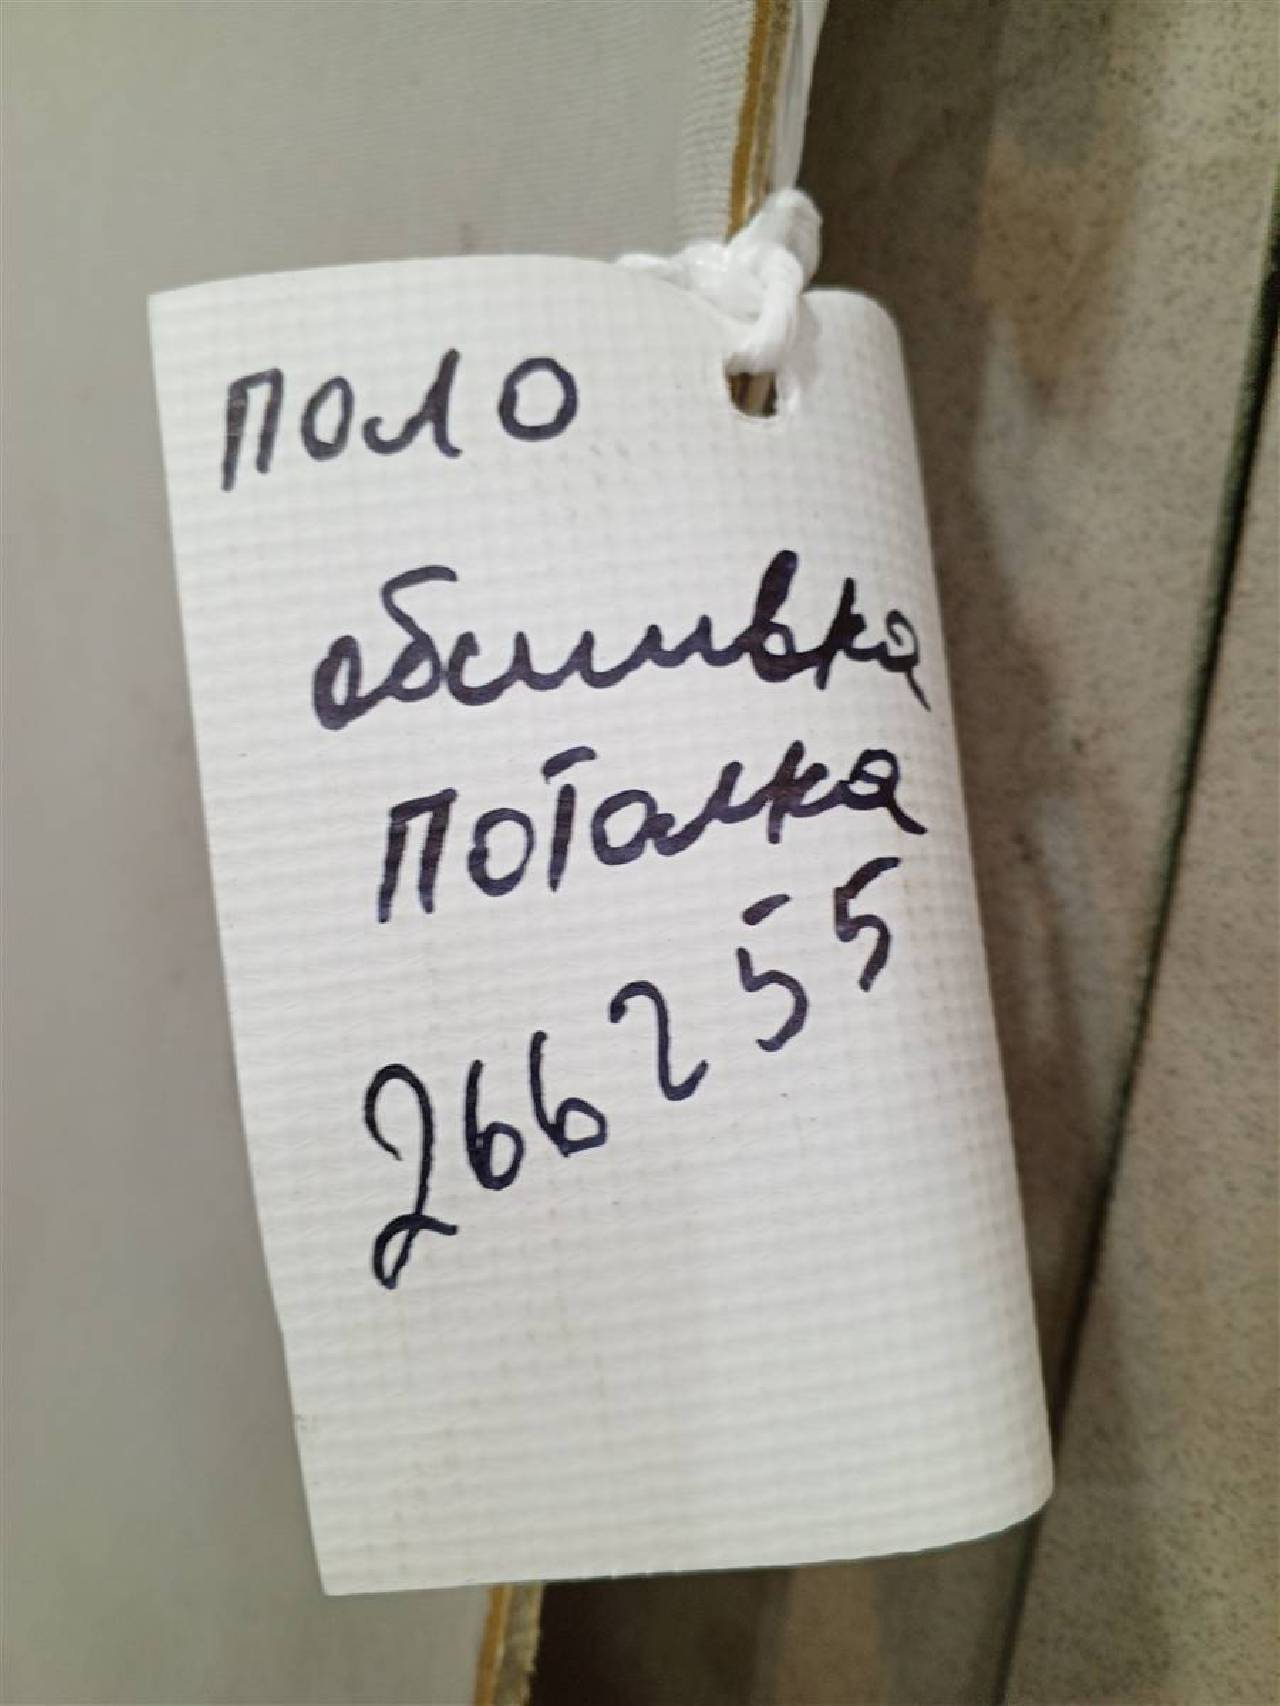 ПОЛО
обшивка
потолка
266255